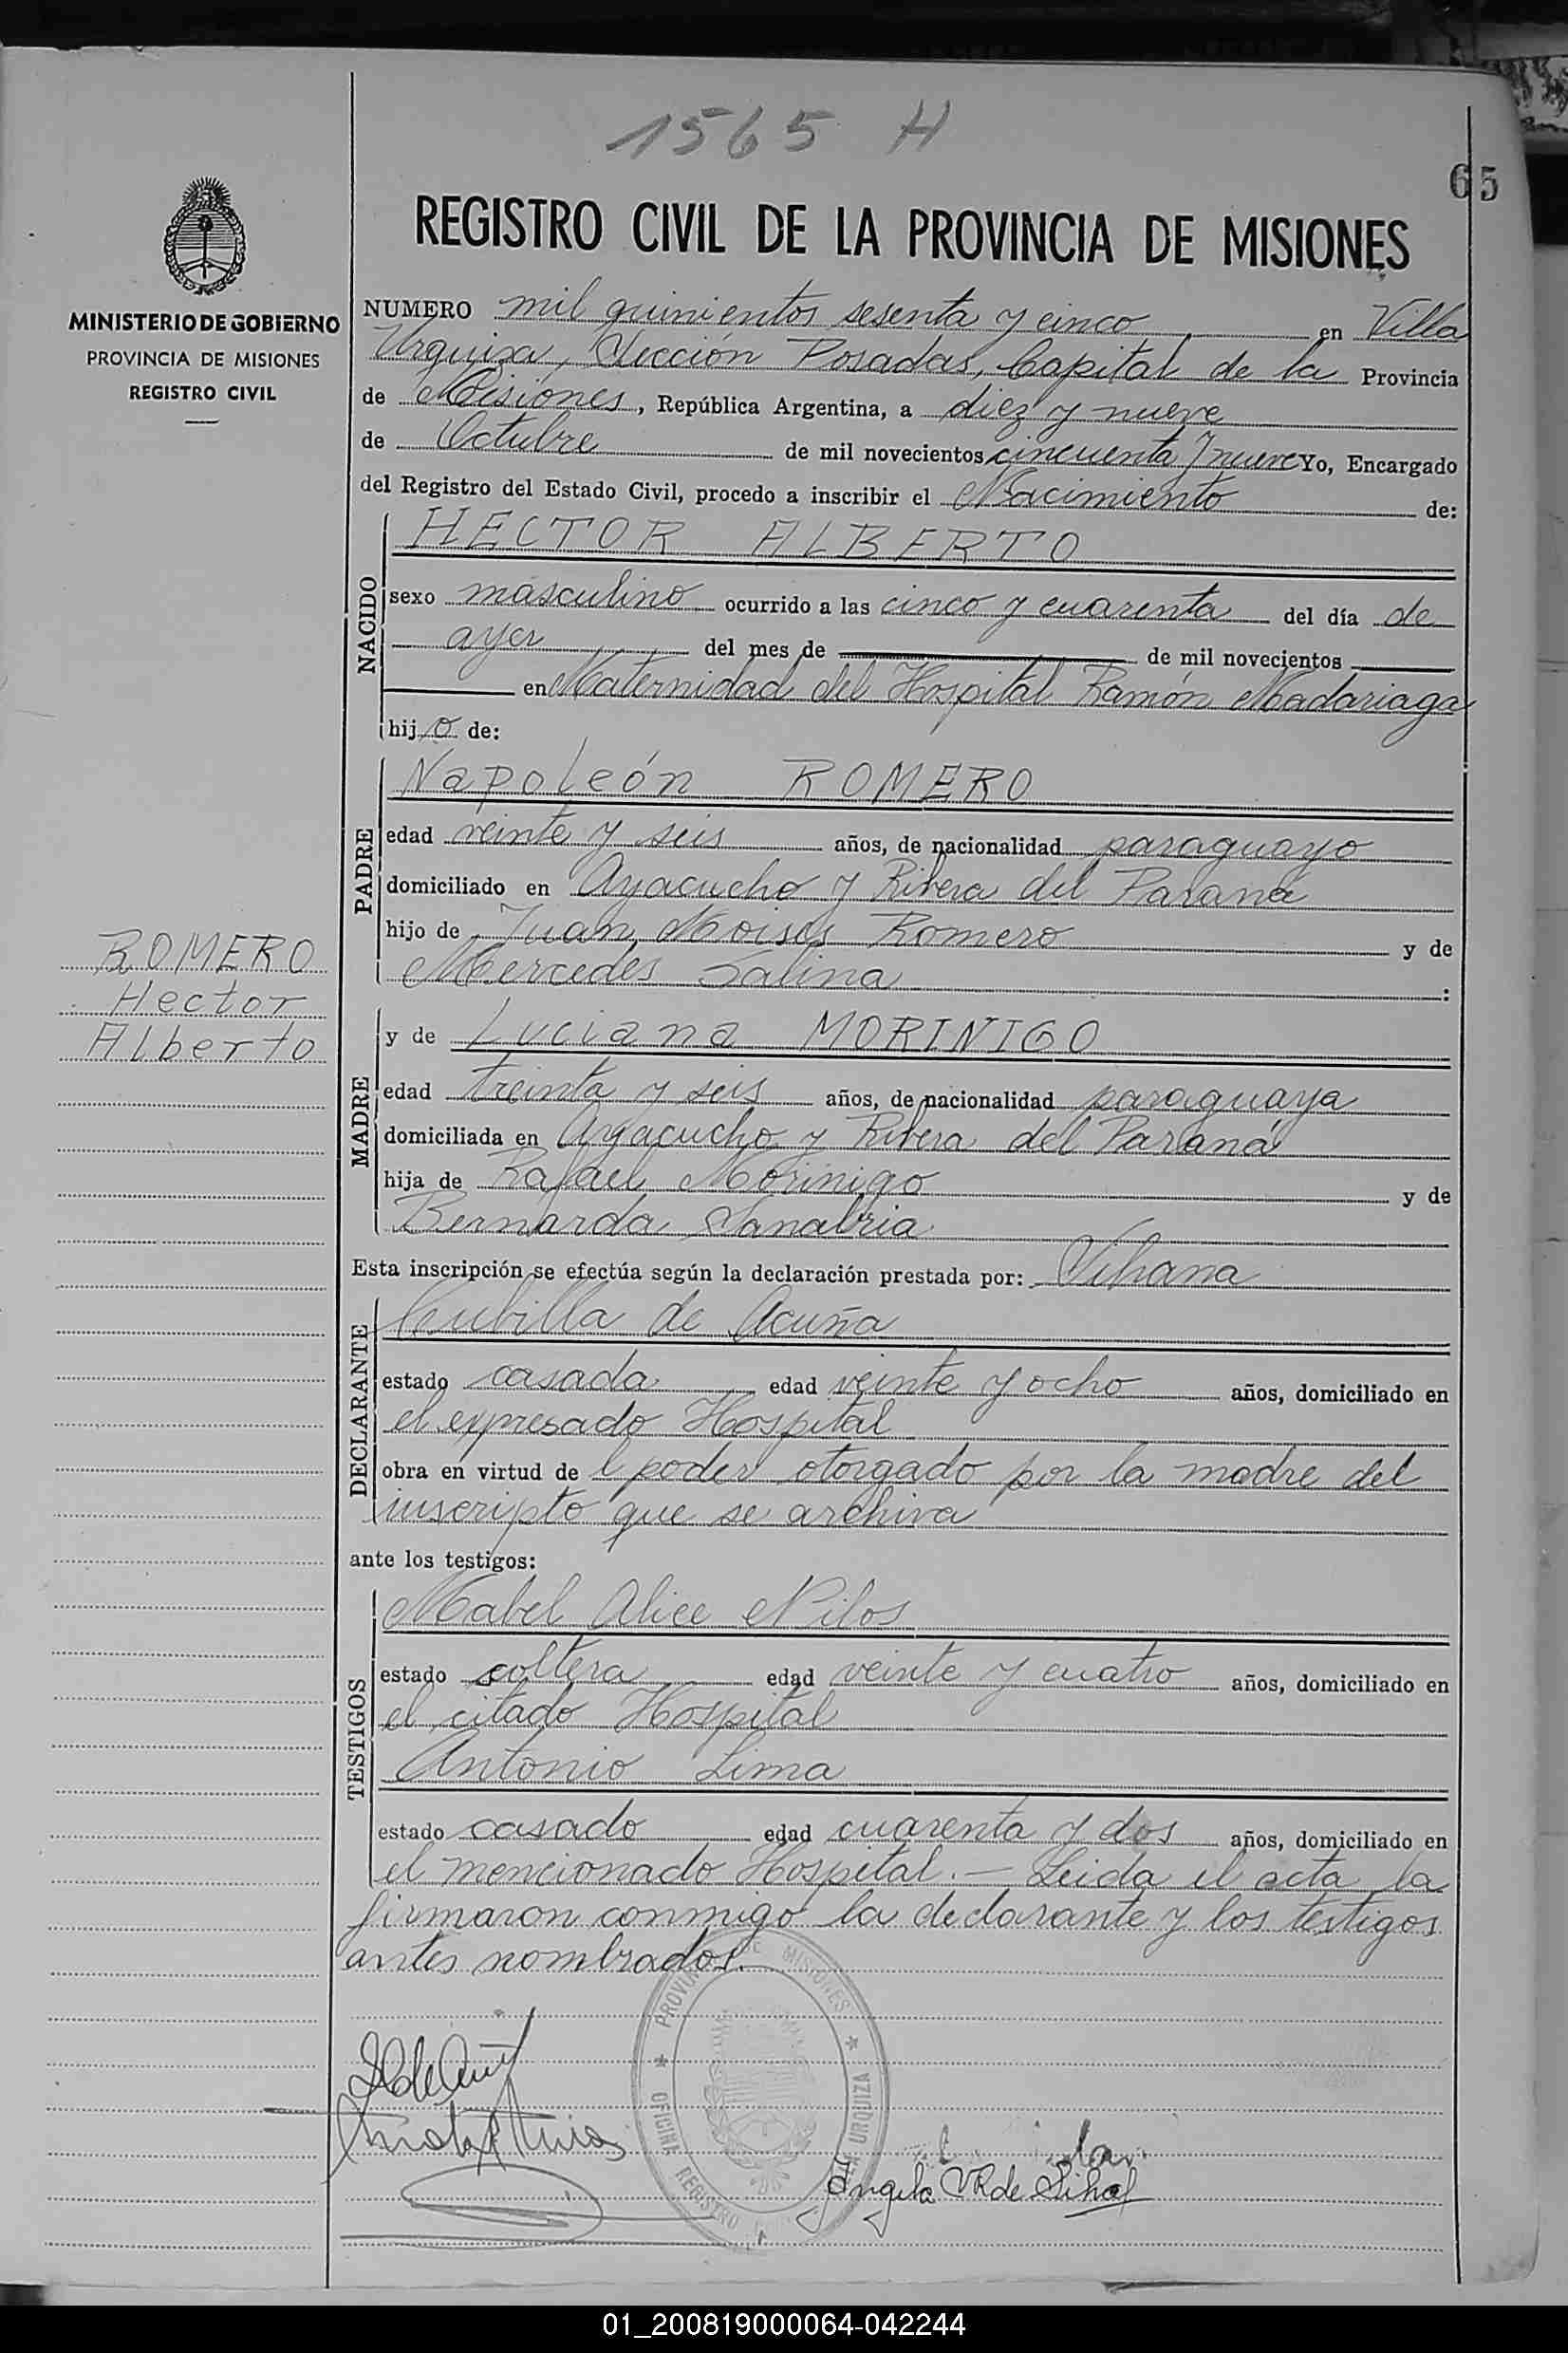 1565 H
65
MINISTERIO DE GOBIERNO
PROVINCIA DE MISIONES
REGISTRO CIVIL
REGISTRO CIVIL DE LA PROVINCIA DE MISIONES
NUMERO mil quinientos sesenta y cinco en Villa
Urquiza, Sección Posadas, Capital de la Provincia
de Misiones, República Argentina, a diez y nueve
de Octubre de mil novecientos cincuenta y nueve Yo, Encargado
del Registro del Estado Civil, procedo a inscribir el Nacimiento de:
NACIDO
HECTOR ALBERTO
sexo masculino ocurrido a las cinco y cuarenta del día de
ayer del mes de de mil novecientos
en Maternidad del Hospital Ramón Madariaga
hijo de:
PADRE
Napoleón ROMERO
edad veinte y seis años, de nacionalidad paraguayo
domiciliado en Ayacucho y Ribera del Paraná
hijo de Juan Moisés Romero y de
Mercedes Salina :
ROMERO
Hector
Alberto
MADRE
y de Luciana MORINIGO
edad treinta y seis años, de nacionalidad paraguaya
domiciliada en Ayacucho y Ribera del Paraná
hija de Rafael Morinigo y de
Bernarda Sanabria
Esta inscripción se efectúa según la declaración prestada por:
DECLARANTE
Cubilla de Acuña
estado casada edad veinte y ocho años, domiciliado en
el expresado Hospital
obra en virtud de l poder otorgado por la madre del
inscripto que se archiva
ante los testigos:
TESTIGOS
Mabel Alice Nilos
estado soltera edad veinte y cuatro años, domiciliado en
el citado Hospital
Antonio Lima
estado casado edad cuarenta y dos años, domiciliado en
el mencionado Hospital.— Leida el acta la
firmaron conmigo la declarante y los testigos
antes nombrados.
MISIONES
URQUIZA
OFICINA REGISTRO
Angela VR de
01_200819000064-042244